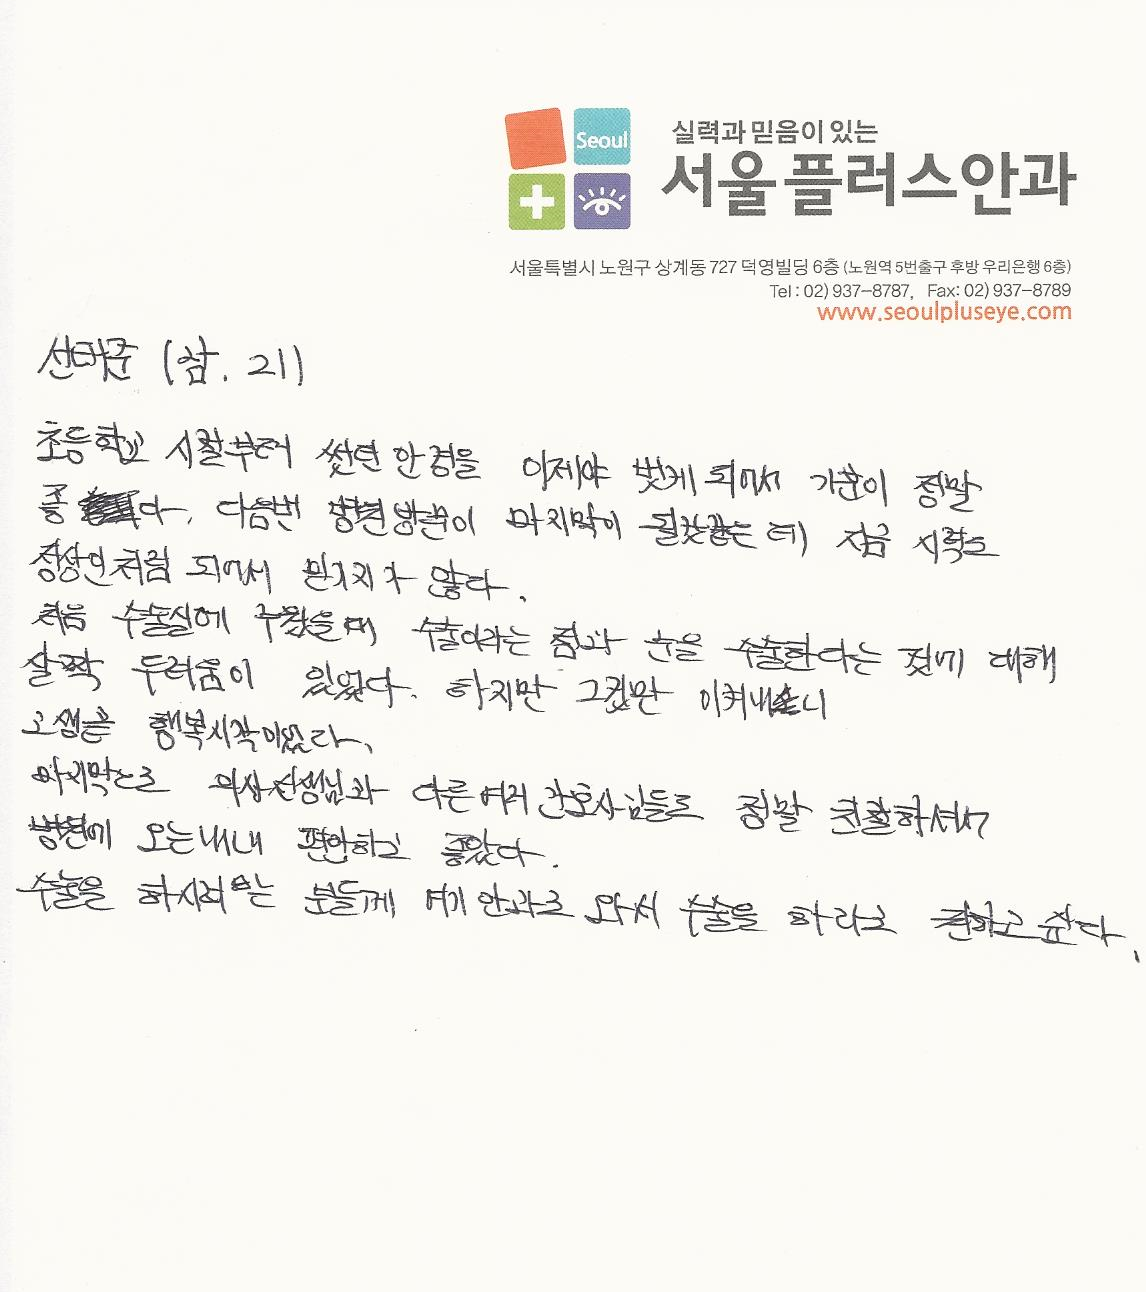 Seoul
실력과 믿음이 있는
서울플러스안과
서울특별시 노원구 상계동 727 덕영빌딩 6층 (노원역 5번출구 후방 우리은행 6층)
Tel : 02) 937-8787, Fax: 02) 937-8789
www.seoulpluseye.com
선태준 (남. 21)
초등학교 시절부터 썼던 안경을 이제야 벗게 되어서 기분이 정말
좋다. 다음번 병원방문이 마지막이 될것같은데) 지금 시력도
정상인처럼 되어서 믿기지가 않다.
처음 수술실에 누웠을때 수술이라는 점과 눈을 수술한다는 것에 대해
살짝 두려움이 있었다. 하지만 그것만 이켜내니
고생끝 행복시작이었다.
마지막으로 의사선생님과 다른 여러 간호사님들도 정말 친절하셔서
병원에 오는내내 편안하고 좋았다.
수술을 하시려는 분들께 여기 안과로 와서 수술을 하라고 권하고 싶다.